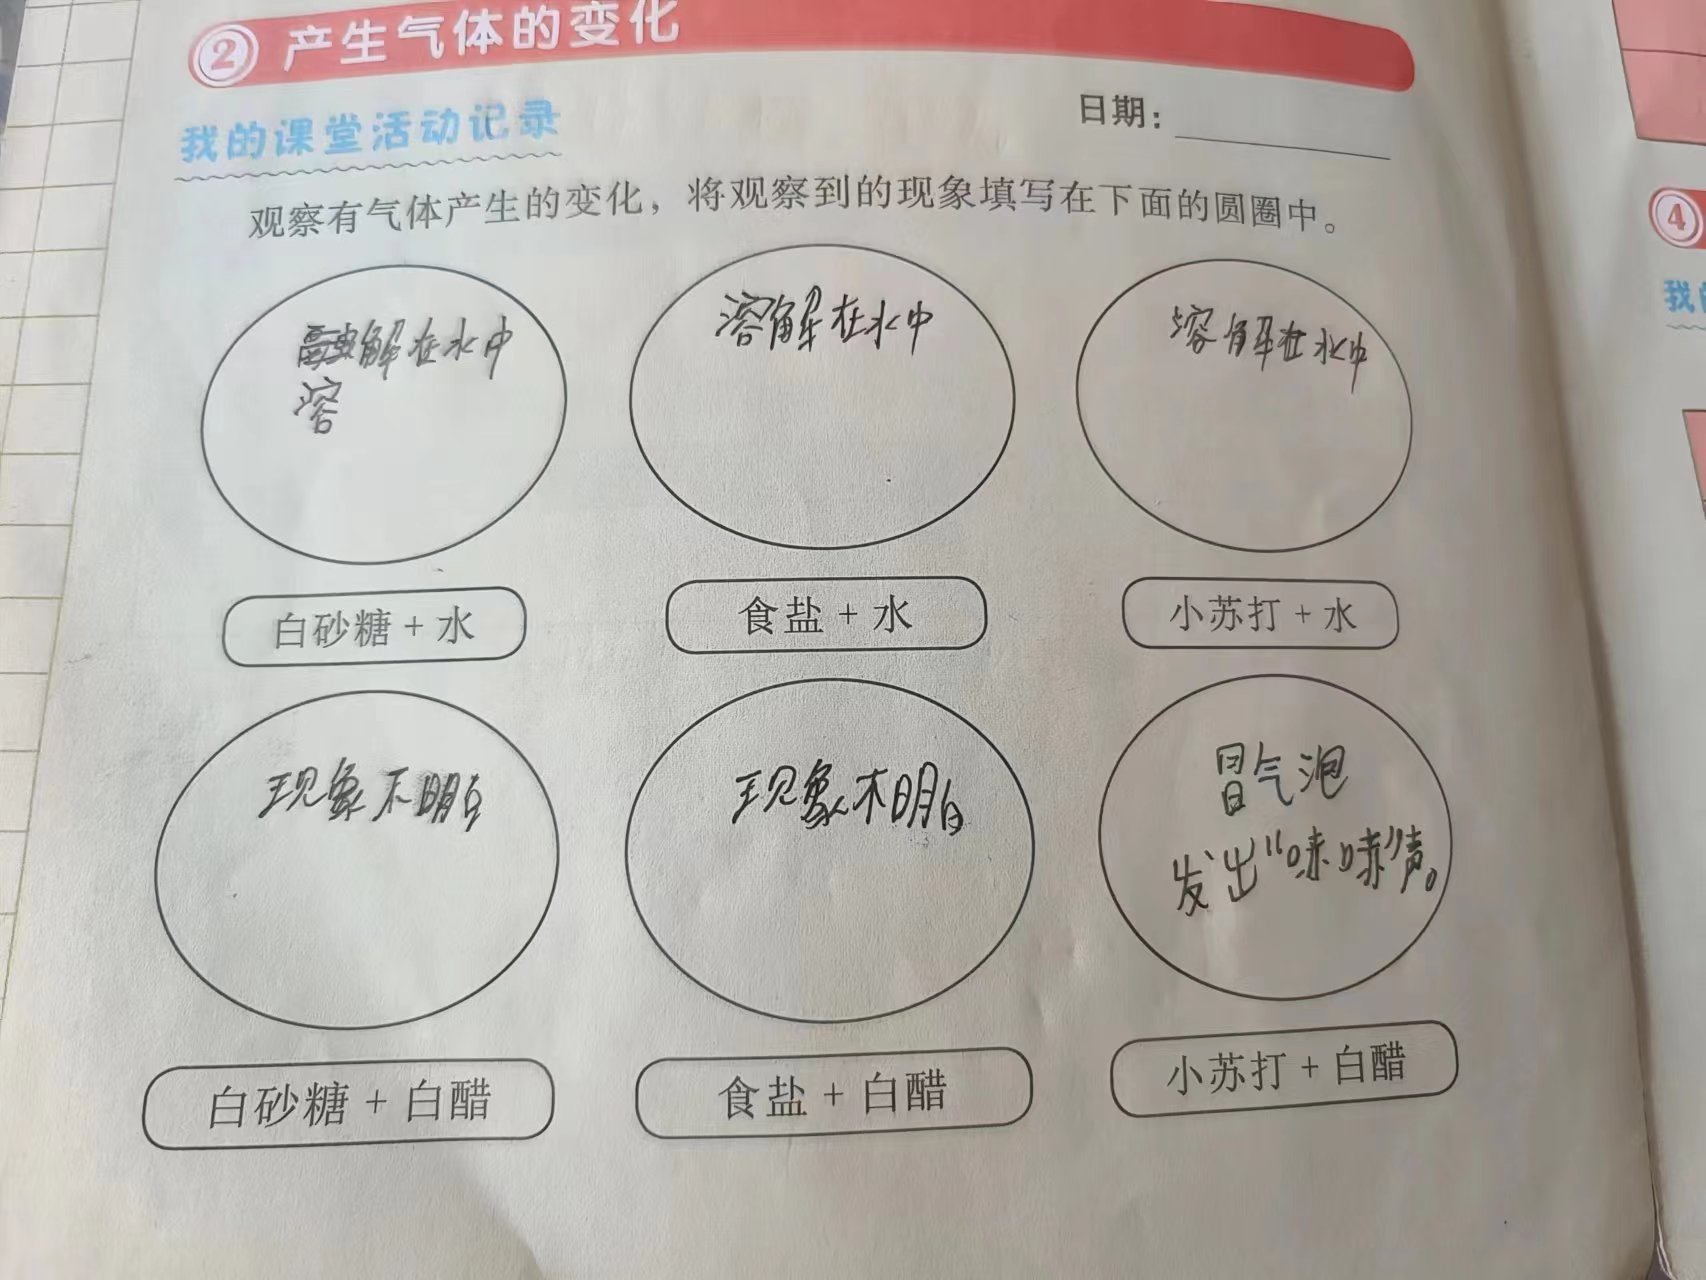 2 产生气体的变化
我的课堂活动记录
日期：
观察有气体产生的变化，将观察到的现象填写在下面的圆圈中。
解在水中
溶
溶解在水中
溶解在水中
白砂糖+水
食盐+水
小苏打+水
现象不明白
现象不明白
冒气泡
发出“味味”声。
白砂糖+白醋
食盐+白醋
小苏打+白醋
4
我